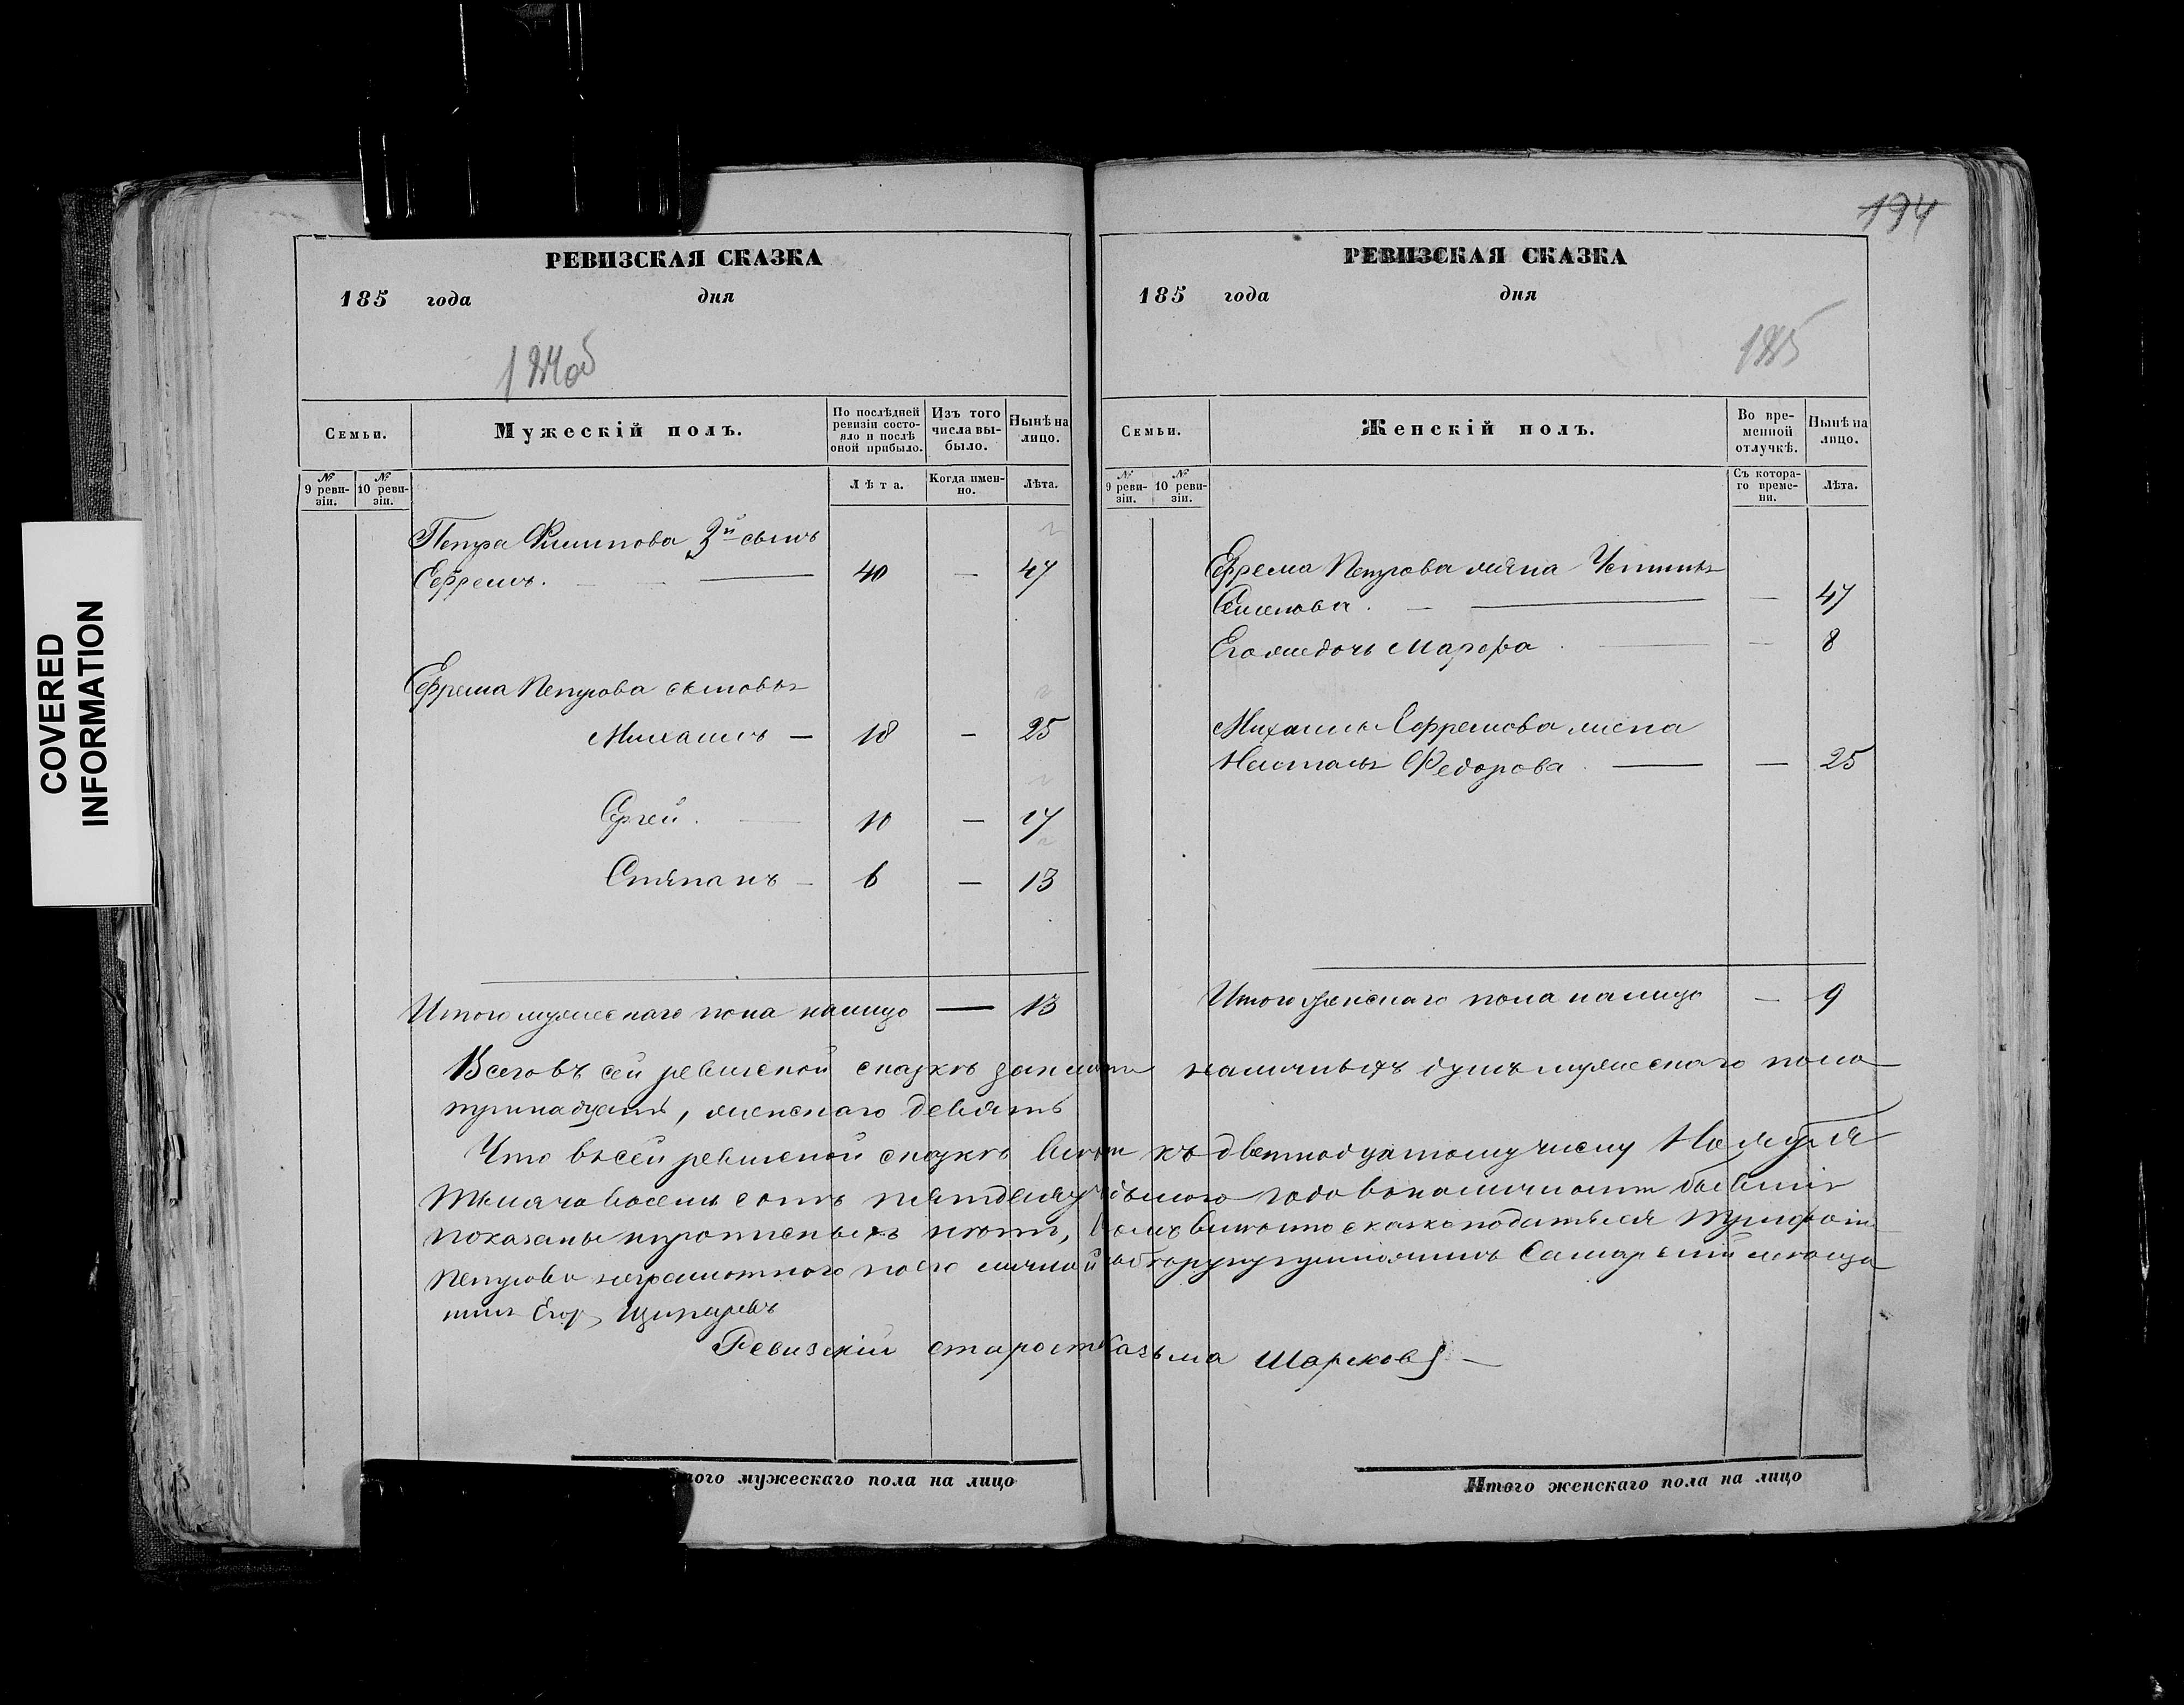 194
РЕВИЗСКАЯ СКАЗКА
185 года дня
Семьи.
Мужескій полъ.
По послѣдней ревизіи состояло и послѣ оной прибыло.
Изъ того числа выбыло.
Нынѣ на лицо.
№ 9 ревизіи.
№ 10 ревизіи.
Лѣта.
Когда именно.
Лѣта.
Петра Филипова 3й сынъ
Ефремъ. — 40 — 47
Ефрема Петрова сыновья
Михаилъ — 18 — 25
Сергей. 10 — 17
Степанъ — 6 — 13
Итого мужескаго пола налицо — 13
РЕВИЗСКАЯ СКАЗКА
185 года дня
185
Семьи.
Женскій полъ.
Во временной отлучкѣ.
Нынѣ на лицо.
№ 9 ревизіи.
№ 10 ревизіи.
Съ котораго времени.
Лѣта.
Ефрема Петрова жена
Семенова. — 47
Его же дочь Марфа. — 8
Михаилы Ефремова жена
Федорова. — 25
Итого женскаго пола налицо — 9
Всего въ сей ревиской сказкѣ наличныхъ душъ мужескаго пола
тринадцать, женскаго девять
Что въ сей ревиской сказкѣ все къ двенадцатому числу Ноября
тысяча восемь сотъ пятьдесятъ года въ наличности бывшия
показаны и прописныхъ нетъ, сказкоподатель Трифонъ
Петровъ неграмотного по его личной Самарский
Егор
Ревизскій староста Казьма Шарковъ —
Итого мужескаго пола на лицо
Итого женскаго пола на лицо
COVERED
INFORMATION